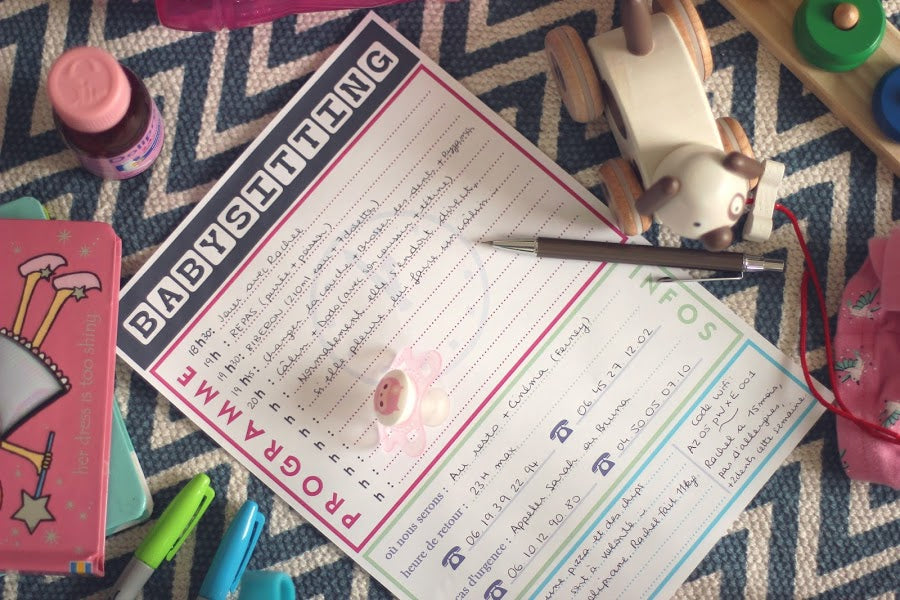 BABYSITTING
PROGRAMME
18h30: Jouer avec Rachel
19h : REPAS (purée + poisson)
19h30: BIBERON (210ml eau + 7 dosettes)
19h45: Changer la couche, brosse les dents + Pyjama
20h : Câlin + Dodo (avec son doudou + tétine)
h : Normalement, elle s'endort direct.
h : si elle pleure, lui faire un câlin.
h :
h :
h :
h :
h :
INFOS
où nous serons : Au resto + Cinéma (Ferney)
heure de retour : 23H max.
06 19 39 22 94
06 45 27 12 02
cas d'urgence : Appeler Sarah ou Bruna
06 10 12 90 80
04 50 05 07 10
une pizza et des chips
sont à volonté
Doliprane. Rachel fait 11kg
Code wifi:
Rachel a 15 mois,
pas d'allergies,
+ 2 dents cette semaine
her dress is too shiny.